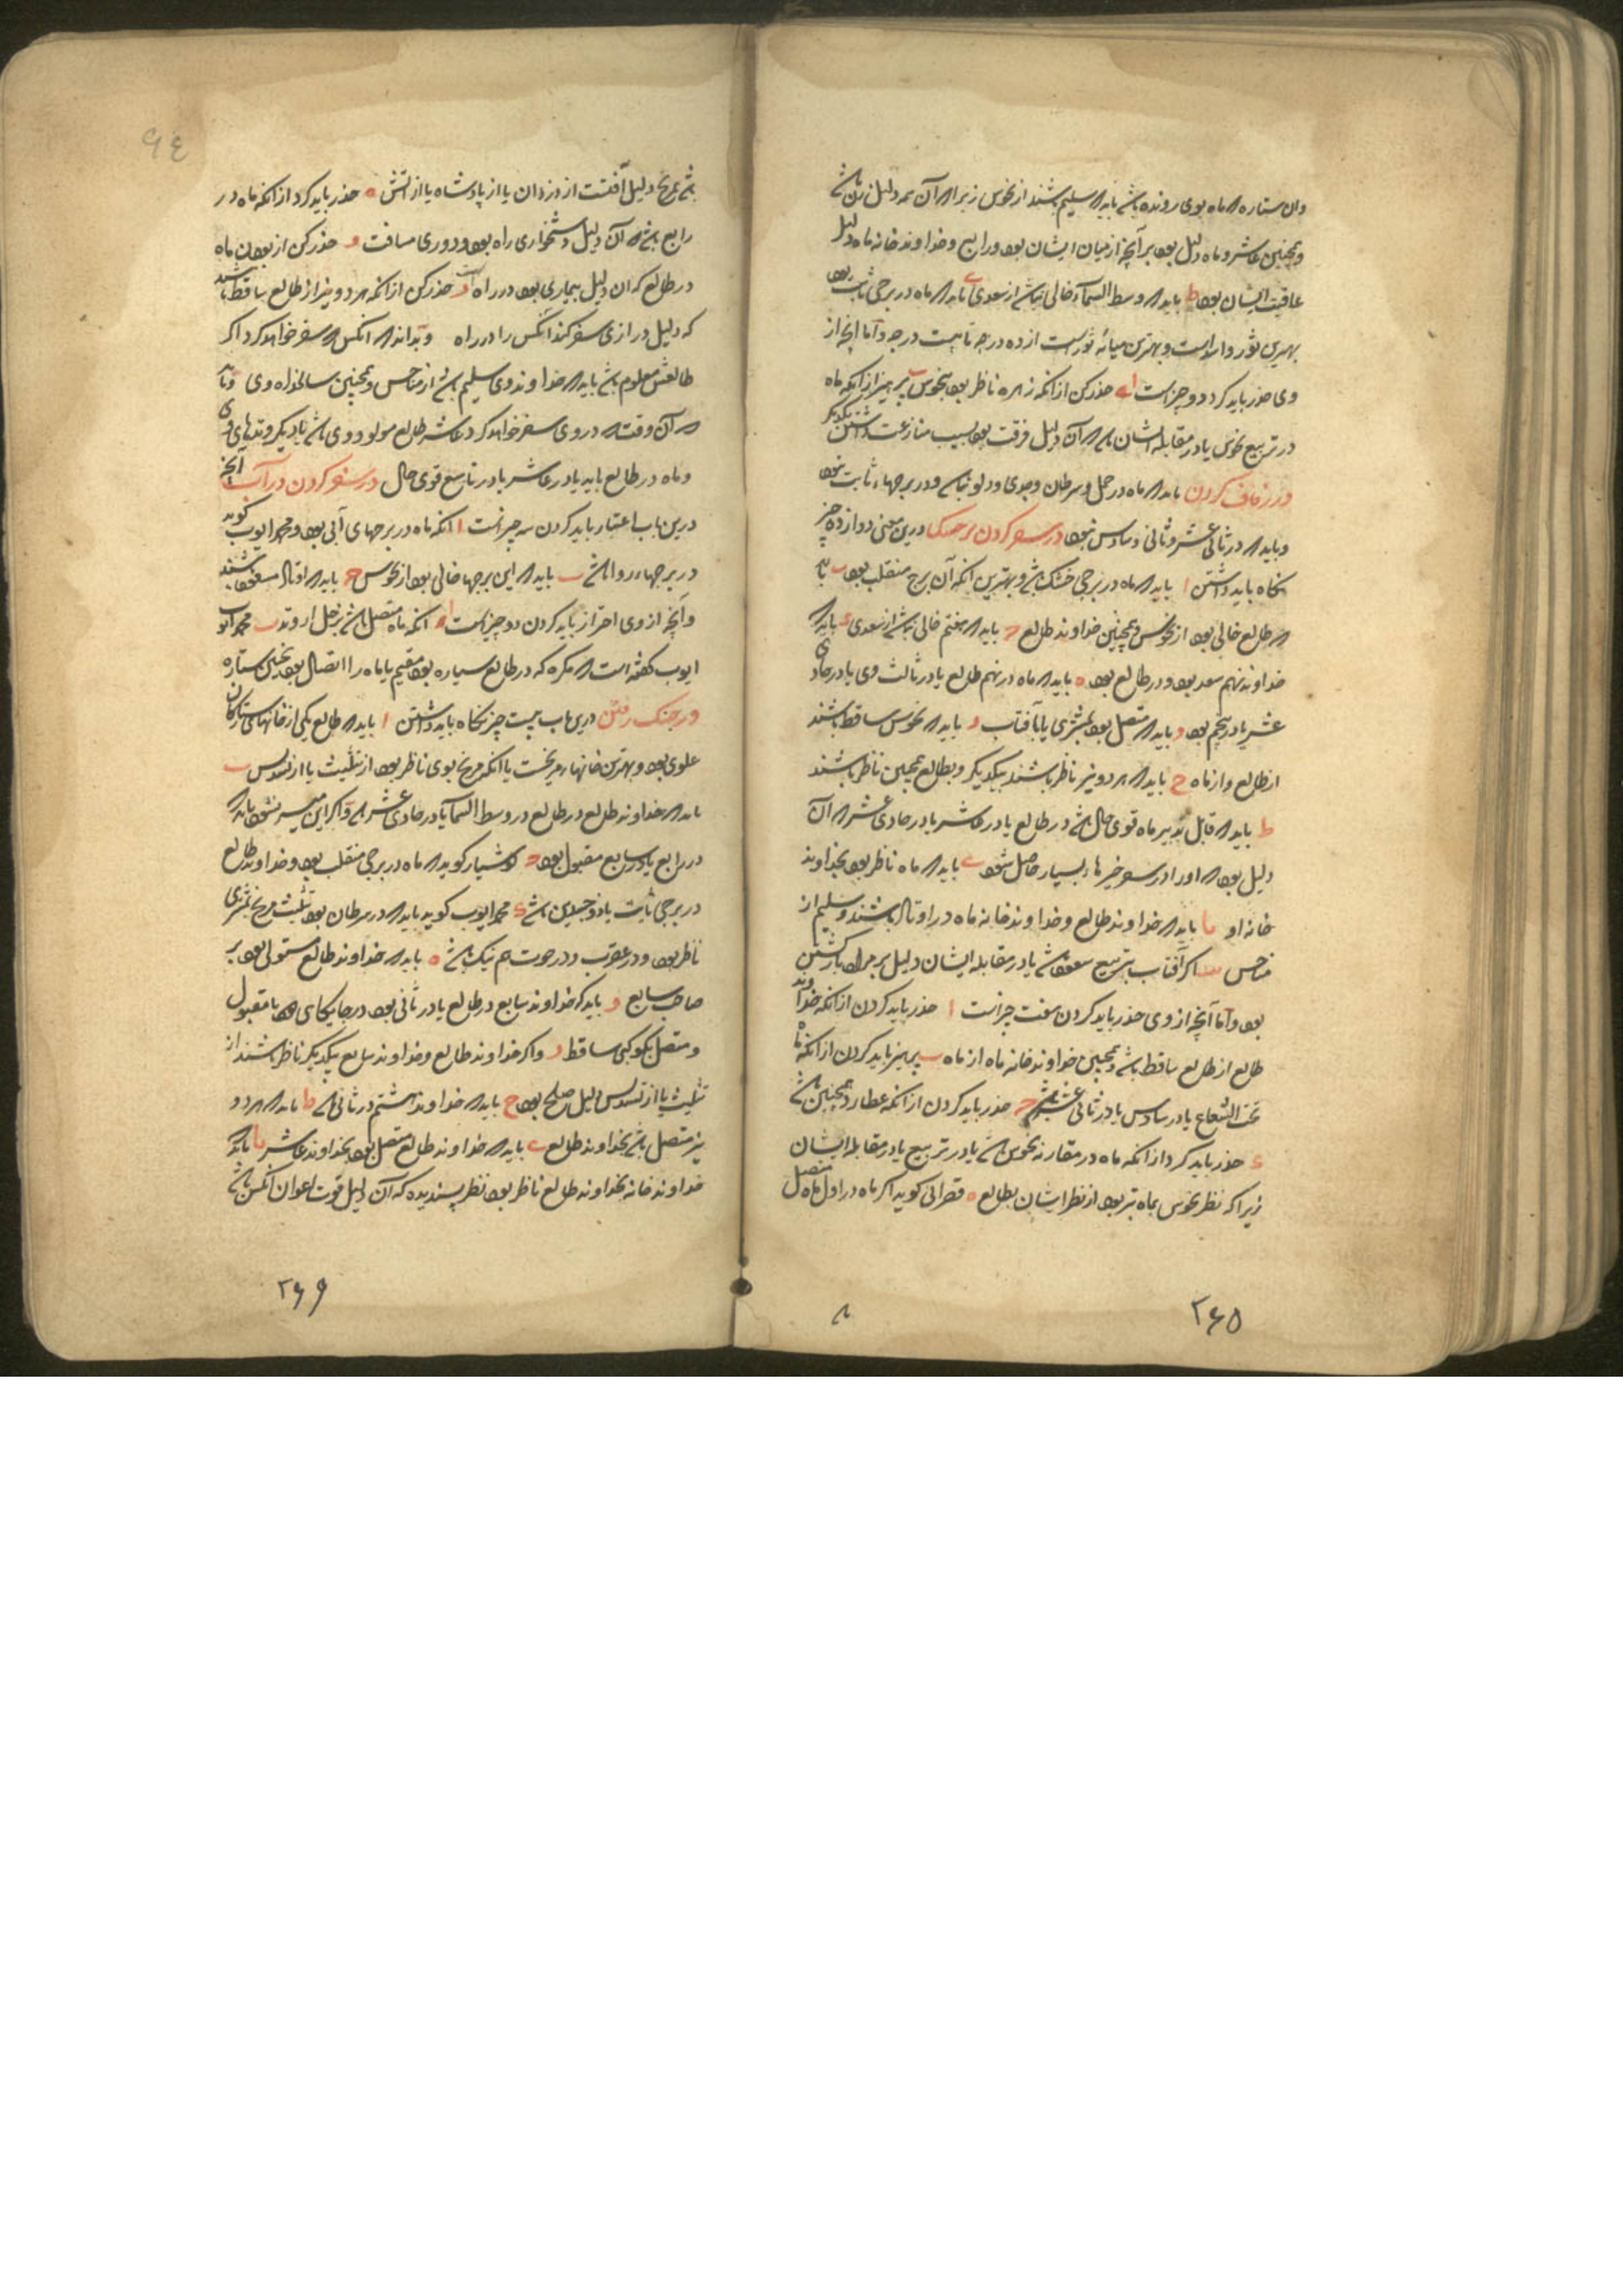 وان ستاره که ماه بوی رونده باشد باید که سلیم باشند از نحوس زیرا که آن همه دلیل زن باشد
و همچنین عاشر و ماه دلیل بود بر آنچه از میان ایشان بود و رابع و خداوند خانه ماه دلیل
عاقبت ایشان بود ط باید که وسط السماء خالی نباشد از سعدی ی باید که ماه در برجی ثابت بود
بهترین ثور و اسد است و بهترین میانهٔ ثور است از ده درجه تا بیست درجه و اما انچه از
وی حذر باید کرد دو چیز است ا حذر کن از انکه زهره ناظر بود بنحوس ب پرهیز از انکه ماه
در تربیع نحوس یا در مقابله ایشان باشد که آن دلیل فرقت بود بسبب منازعت داشتن یکدیگر
در زفاف کردن باید که ماه در حمل و سرطان و جدی و دلو نباشد و در برجهاء ثابت بود
و باید که در ثانی عشر و ثانی و سادس نبود در سفر کردن بر خشک درین معنی دوازده چیز
نگاه باید داشتن ا باید که ماه در برجی خشک باشد و بهترین انکه آن برج منقلب بود ب باید
که طالع خالی بود از نحوس و همچنین خداوند طالع ج باید که هفتم خالی نباشد از سعدی د باید که
خداوند نهم سعد بود و در طالع بود ه باید که ماه در نهم طالع یا در ثالث وی یا در حادی
عشر یا در پنجم بود و باید که متصل بود بمشتری یا بآفتاب ز باید که نحوس ساقط باشند
از طالع و از ماه ح باید که هر دو نیر ناظر باشند بیکدیگر و بطالع همچنین ناظر باشند
ط باید که قابل تدبیر ماه قوی حال باشد در طالع یا در عاشر یا در حادی عشر که آن
دلیل بود که او را در سفر خیرهاء بسیار حاصل شود ی باید که ماه ناظر بود بخداوند
خانه او یا باید که خداوند طالع و خداوند خانه ماه در اوتاد باشند و سلیم از
مناحس یب اگر آفتاب بتربیع سعود باشد یا در مقابله ایشان دلیل بر مراد بازگشتن
بود و اما آنچه از وی حذر باید کردن هفت چیز است ا حذر باید کردن از انکه خداوند
طالع از طالع ساقط باشد و همچنین خداوند خانه ماه از ماه ب پرهیز باید کردن از انکه ماه
تحت الشعاع یا در سادس یا در ثانی عشر باشد ج حذر باید کردن از انکه عطارد همچنین باشد
د حذر باید کرد از انکه ماه در مقارنه نحوس باشد یا در تربیع یا در مقابله ایشان
زیرا که نظر نحوس بماه بتر بود از نظر ایشان بطالع ه قصرانی کوید اکر ماه در اول ماه متصل
۲۶۵
۸
۹٤
باشد بمریخ دلیل آفتست از دزدان یا از پادشاه یا از آتش ه حذر باید کرد از انکه ماه در
رابع باشد که آن دلیل دشخواری راه بود و دوری مسافت و حذر کن از بودن ماه
در طالع که ان دلیل بیماری بود در راه ز حذر کن از انکه هر دو نیر از طالع ساقط باشند
که دلیل درازی سفر کند انکس را در راه و بداند که انکس که سفر خواهد کرد اکر
طالعش معلوم باشد باید که خداوند وی سلیم باشد از مناحس و همچنین سالخداه وی و باید
که آن وقت که در وی سفر خواهد کرد عاشر طالع مولود وی باشد یا دیگر وتدهای وی
و ماه در طالع باید یا در عاشر یا در تاسع قوی حال در سفر کردن در آب آنچه
درین باب اعتبار باید کردن سه چیز است ا انکه ماه در برجهای آبی بود و محمد ایوب کوید
در برجهاء روا باشد ب باید که این برجها خالی بود از نحوس ج باید که اوتاد مسعود باشند
و آنچه از وی احتراز باید کردن دو چیز است ا انکه ماه متصل باشد بزحل از وتد ب محمد
ایوب کفته است که مکره که در طالع سیاره بود مقیم یا ماه را اتصال بود بچنین ستاره
در جنک رفتن درین باب بیست چیز نکاه باید داشتن ا باید که طالع یکی از خانهاء ستارکان
علوی بود و بهترین خانهاء مریخست با انکه مریخ بوی ناظر بود از تثلیث یا از تسدیس ب
باید که خداوند طالع در طالع در وسط السماء یا در حادی عشر باشد و اکر این میسر نشود باید که
در رابع یا در سابع مقبول بود ج کوشیار کوید که ماه در برجی منقلب بود و خداوند طالع
در برجی ثابت یا ذو جسدین باشد د محمد ایوب کوید باید که در سرطان بود بتثلیث مریخ بمشتری
ناظر بود و در عقرب و در حوت هم نیک باشد ه باید که خداوند طالع مستولی بود بر
صاحب سابع و باید که خداوند سابع در طالع یا در ثانی بود در جایکاهی که نا مقبول
و متصل بکوکبی ساقط ز و اکر خداوند طالع و خداوند سابع بیکدیکر ناظر باشند از
تثلیث یا از تسدیس دلیل صلح بود ح باید که خداوند هشتم در ثانی باشد ط باید که هر دو
نیر متصل باشد بخداوند طالع ی باید که خداوند طالع متصل بود بخداوند عاشر یا باید که
خداوند خانه بخداوند طالع ناظر بود نظر پسندیده که آن دلیل قوت اعوان انکس باشد
۲۶۶